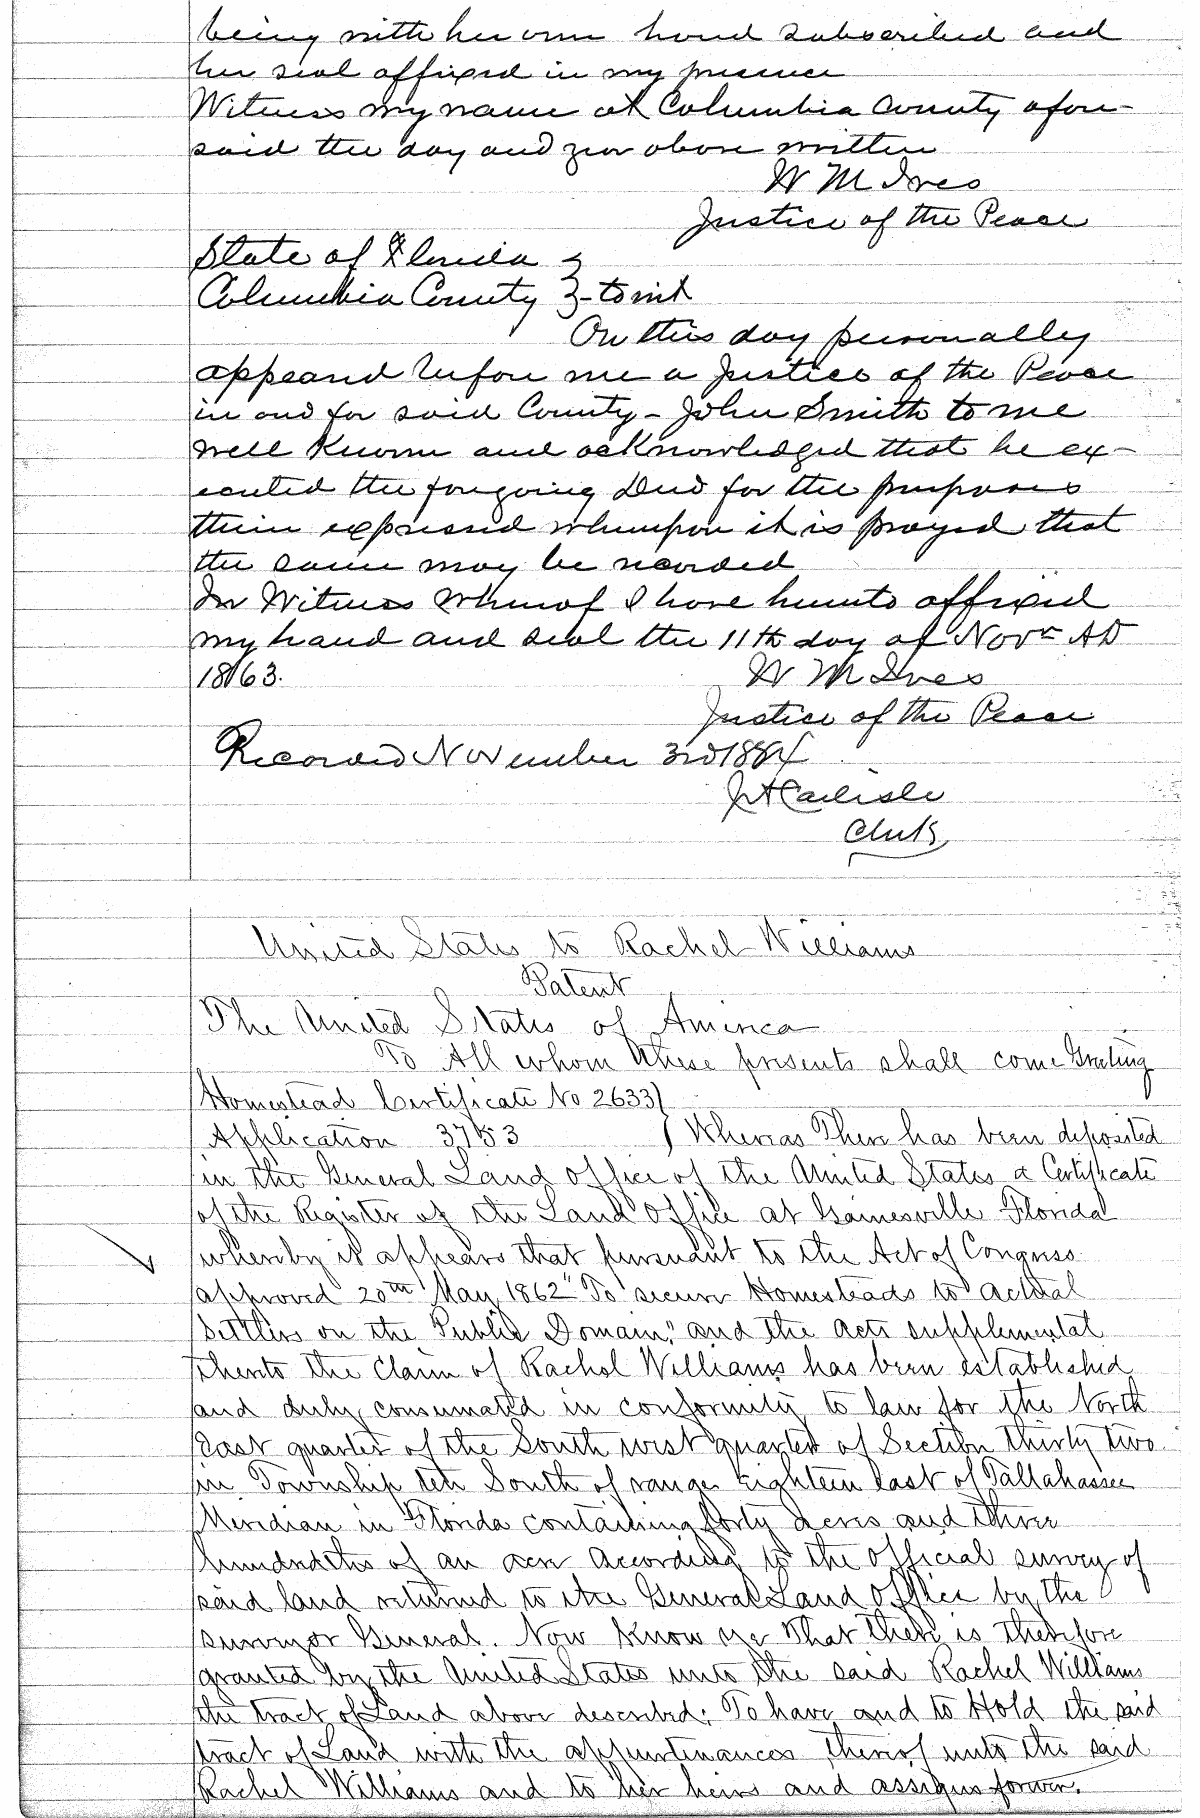 being with her own hand subscribed and
her seal affixed in my presence
Witness my name at Columbia County afore-
said the day and year above written
W M Ives
Justice of the Peace
State of Florida }
Columbia County } - to wit
On this day personally
appeared before me a Justice of the Peace
in and for said County - John Smith to me
well Known and acknowledged that he ex-
ecuted the foregoing Deed for the purposes
therein expressed whereupon it is prayed that
the same may be recorded
In Witness Whereof I have hereunto affixed
my hand and seal the 11th day of Novr AD
1863.
W M Ives
Justice of the Peace
Recorded November 3rd 1884
J A Carlisle
Clerk
United States to Rachel Williams
Patent
The United States of America
To All whom these presents shall come Greeting
Homestead Certificate No 2633 }
Application 3753 } Whereas There has been deposited
in the General Land Office of the United States a Certificate
of the Register of the Land Office at Gainesville Florida
whereby it appears that pursuant to the Act of Congress
approved 20th May 1862 "To secure Homesteads to actual
Settlers on the Public Domain," and the acts supplemental
thereto the Claim of Rachel Williams has been established
and duly consumated in conformity to law for the North
East quarter of the South west quarter of Section thirty two
in Township ten South of range Eighteen East of Tallahassee
Meridian in Florida containing forty acres and three
hundredths of an acre According to the Official survey of
said land returned to the General Land Office by the
Surveyor General. Now Know ye That there is therefore
granted by the United States unto the said Rachel Williams
the tract of Land above described: To have and to Hold the said
tract of Land with the appurtenances thereof unto the said
Rachel Williams and to her heirs and assigns forever.